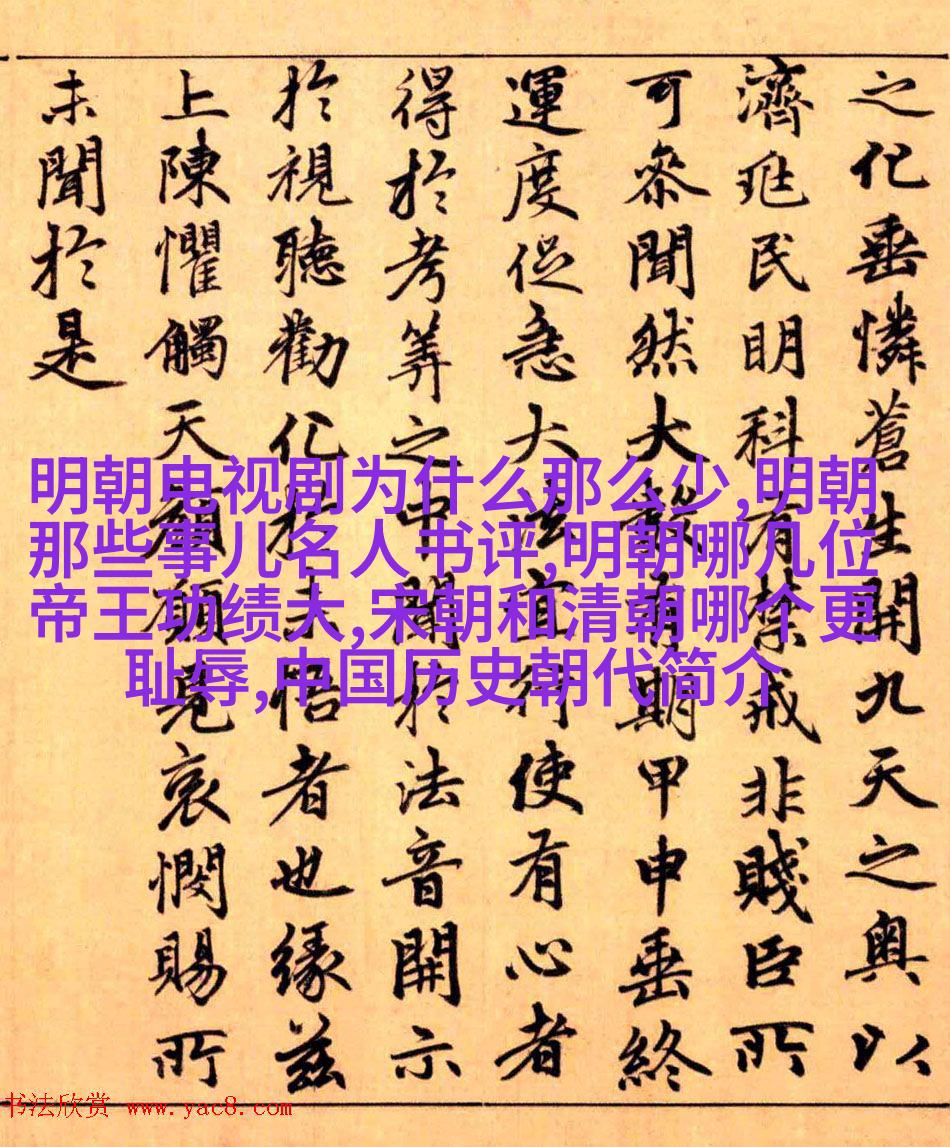 之化垂憐蒼生開九天之奧以
濟兆民明科有禁戒非賤臣所
可參聞然大數有期甲申垂終
運度促急大法宜行使有心者
得於考筭之中聞於法音開示
於視聽勸化於未悟者也緣茲
上陳懼觸天顏願見哀憫賜所
未聞於是
明朝电视剧为什么那么少,明朝
那些事儿名人书评,明朝哪几位
帝王功绩大,宋朝和清朝哪个更
耻辱,中国历史朝代简介
书法欣赏 www.yac8.com